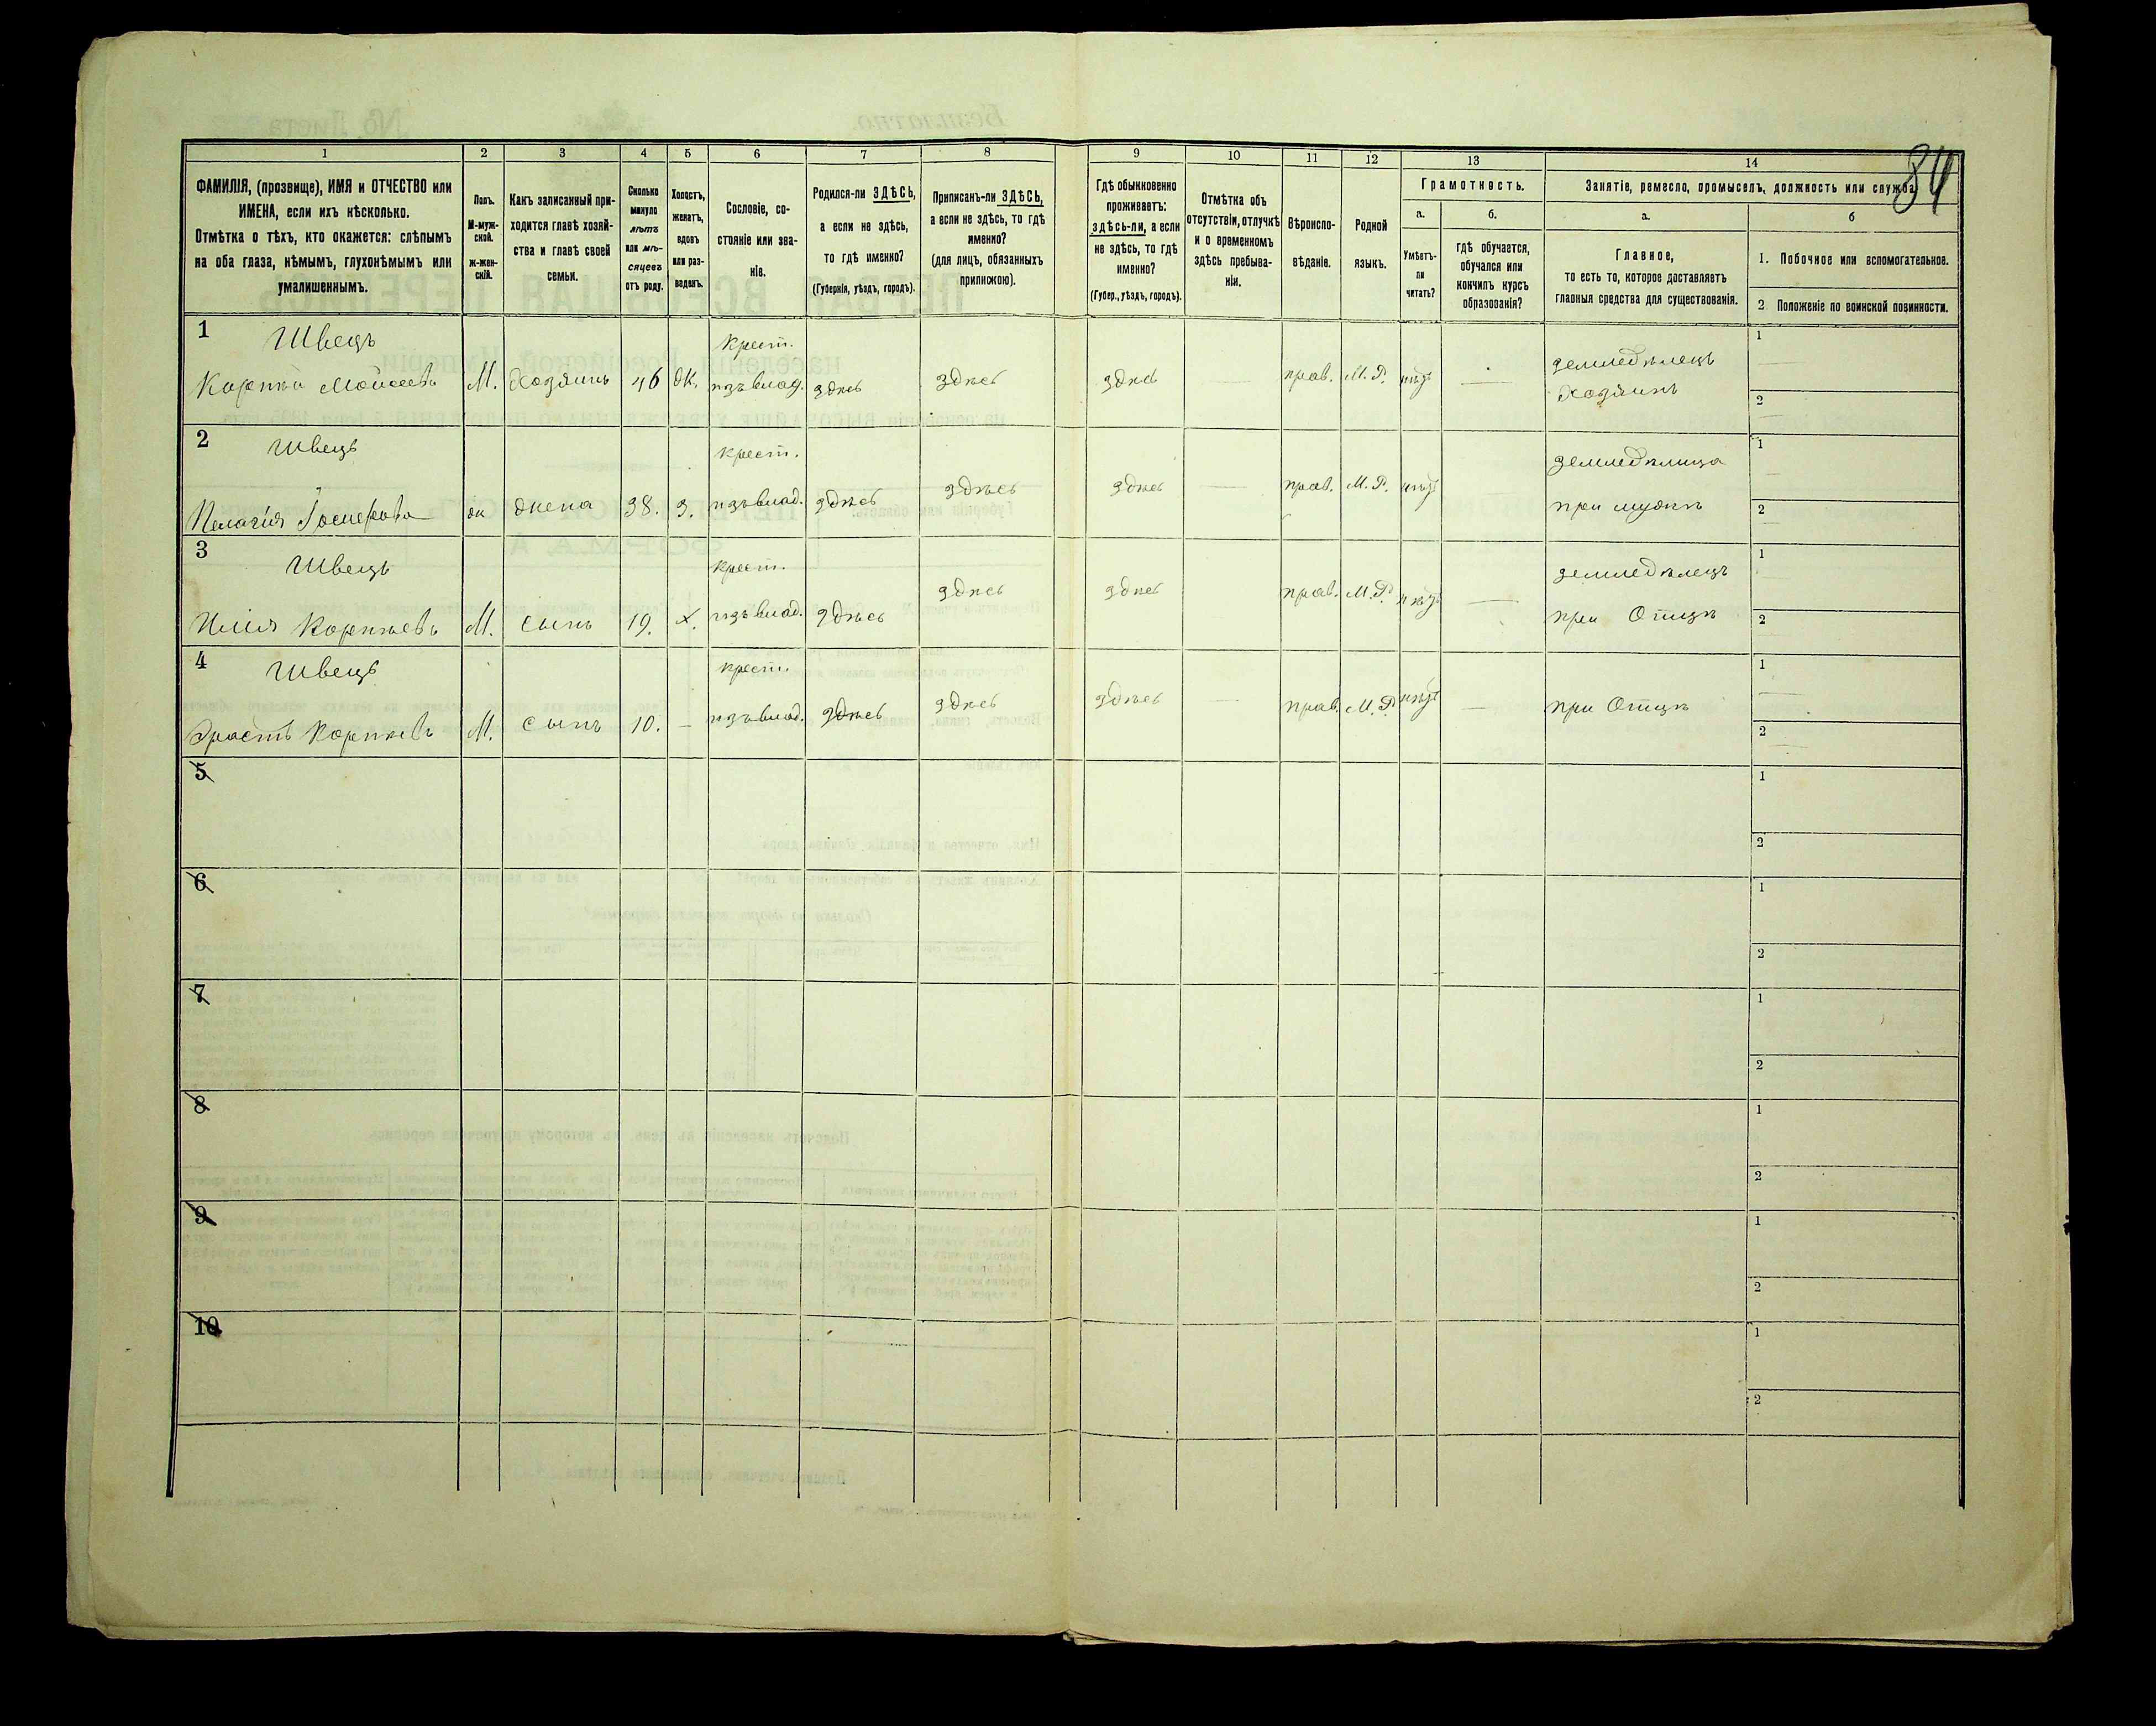 84
1 2 3 4 5 6 7 8 9 10 11 12 13 14
ФАМИЛІЯ, (прозвище), ИМЯ и ОТЧЕСТВО или
ИМЕНА, если ихъ нѣсколько.
Отмѣтка о тѣхъ, кто окажется: слѣпымъ
на оба глаза, нѣмымъ, глухонѣмымъ или
умалишеннымъ.
Полъ.
М-муж-
ской.
ж-жен-
скій.
Какъ записанный при-
ходится главѣ хозяй-
ства и главѣ своей
семьи.
Сколько
минуло
лѣтъ
или мѣ-
сяцевъ
отъ роду.
Холостъ,
женатъ,
вдовъ
или раз-
веденъ.
Сословіе, со-
стояніе или зва-
ніе.
Родился-ли ЗДѢСЬ,
а если не здѣсь,
то гдѣ именно?
(Губернія, уѣздъ, городъ).
Приписанъ-ли ЗДѢСЬ,
а если не здѣсь, то гдѣ
именно?
(для лицъ, обязанныхъ
припискою).
Гдѣ обыкновенно
проживаетъ:
здѣсь-ли, а если
не здѣсь, то гдѣ
именно?
(Губер., уѣздъ, городъ).
Отмѣтка объ
отсутствіи, отлучкѣ
и о временномъ
здѣсь пребыва-
ніи.
Вѣроиспо-
вѣданіе.
Родной
языкъ.
Грамотность.
а.
Умѣетъ-
ли
читать?
б.
гдѣ обучается,
обучался или
кончилъ курсъ
образованія?
Занятіе, ремесло, промыселъ, должность или служба.
а.
Главное,
то есть то, которое доставляетъ
главныя средства для существованія.
б
1. Побочное или вспомогательное.
2 Положеніе по воинской повинности.
1 Швецъ крест. земледѣлецъ 1
Карпъ Моисеевъ М. Хозяинъ 46 Ж. изъ влад. здѣсь здѣсь здѣсь — прав. М. Р. нѣтъ — Хозяинъ 2
2 Швецъ крест. земледѣлица 1
Пелагія ж жена 38. З. изъ влад. здѣсь здѣсь здѣсь — прав. М. Р. нѣтъ при мужѣ 2
3 Швецъ крест. земледѣлецъ 1
Илія Карпіевъ М. сынъ 19. Х. изъ влад. здѣсь здѣсь здѣсь прав. М. Р. нѣтъ — при Отцѣ 2
4 Швецъ крест. 1
Эрастъ Карпіевъ М. сынъ 10. — изъ влад. здѣсь здѣсь здѣсь — прав. М. Р. нѣтъ — при Отцѣ 2
5 1
2
6 1
2
7 1
2
8 1
2
9 1
2
10 1
2